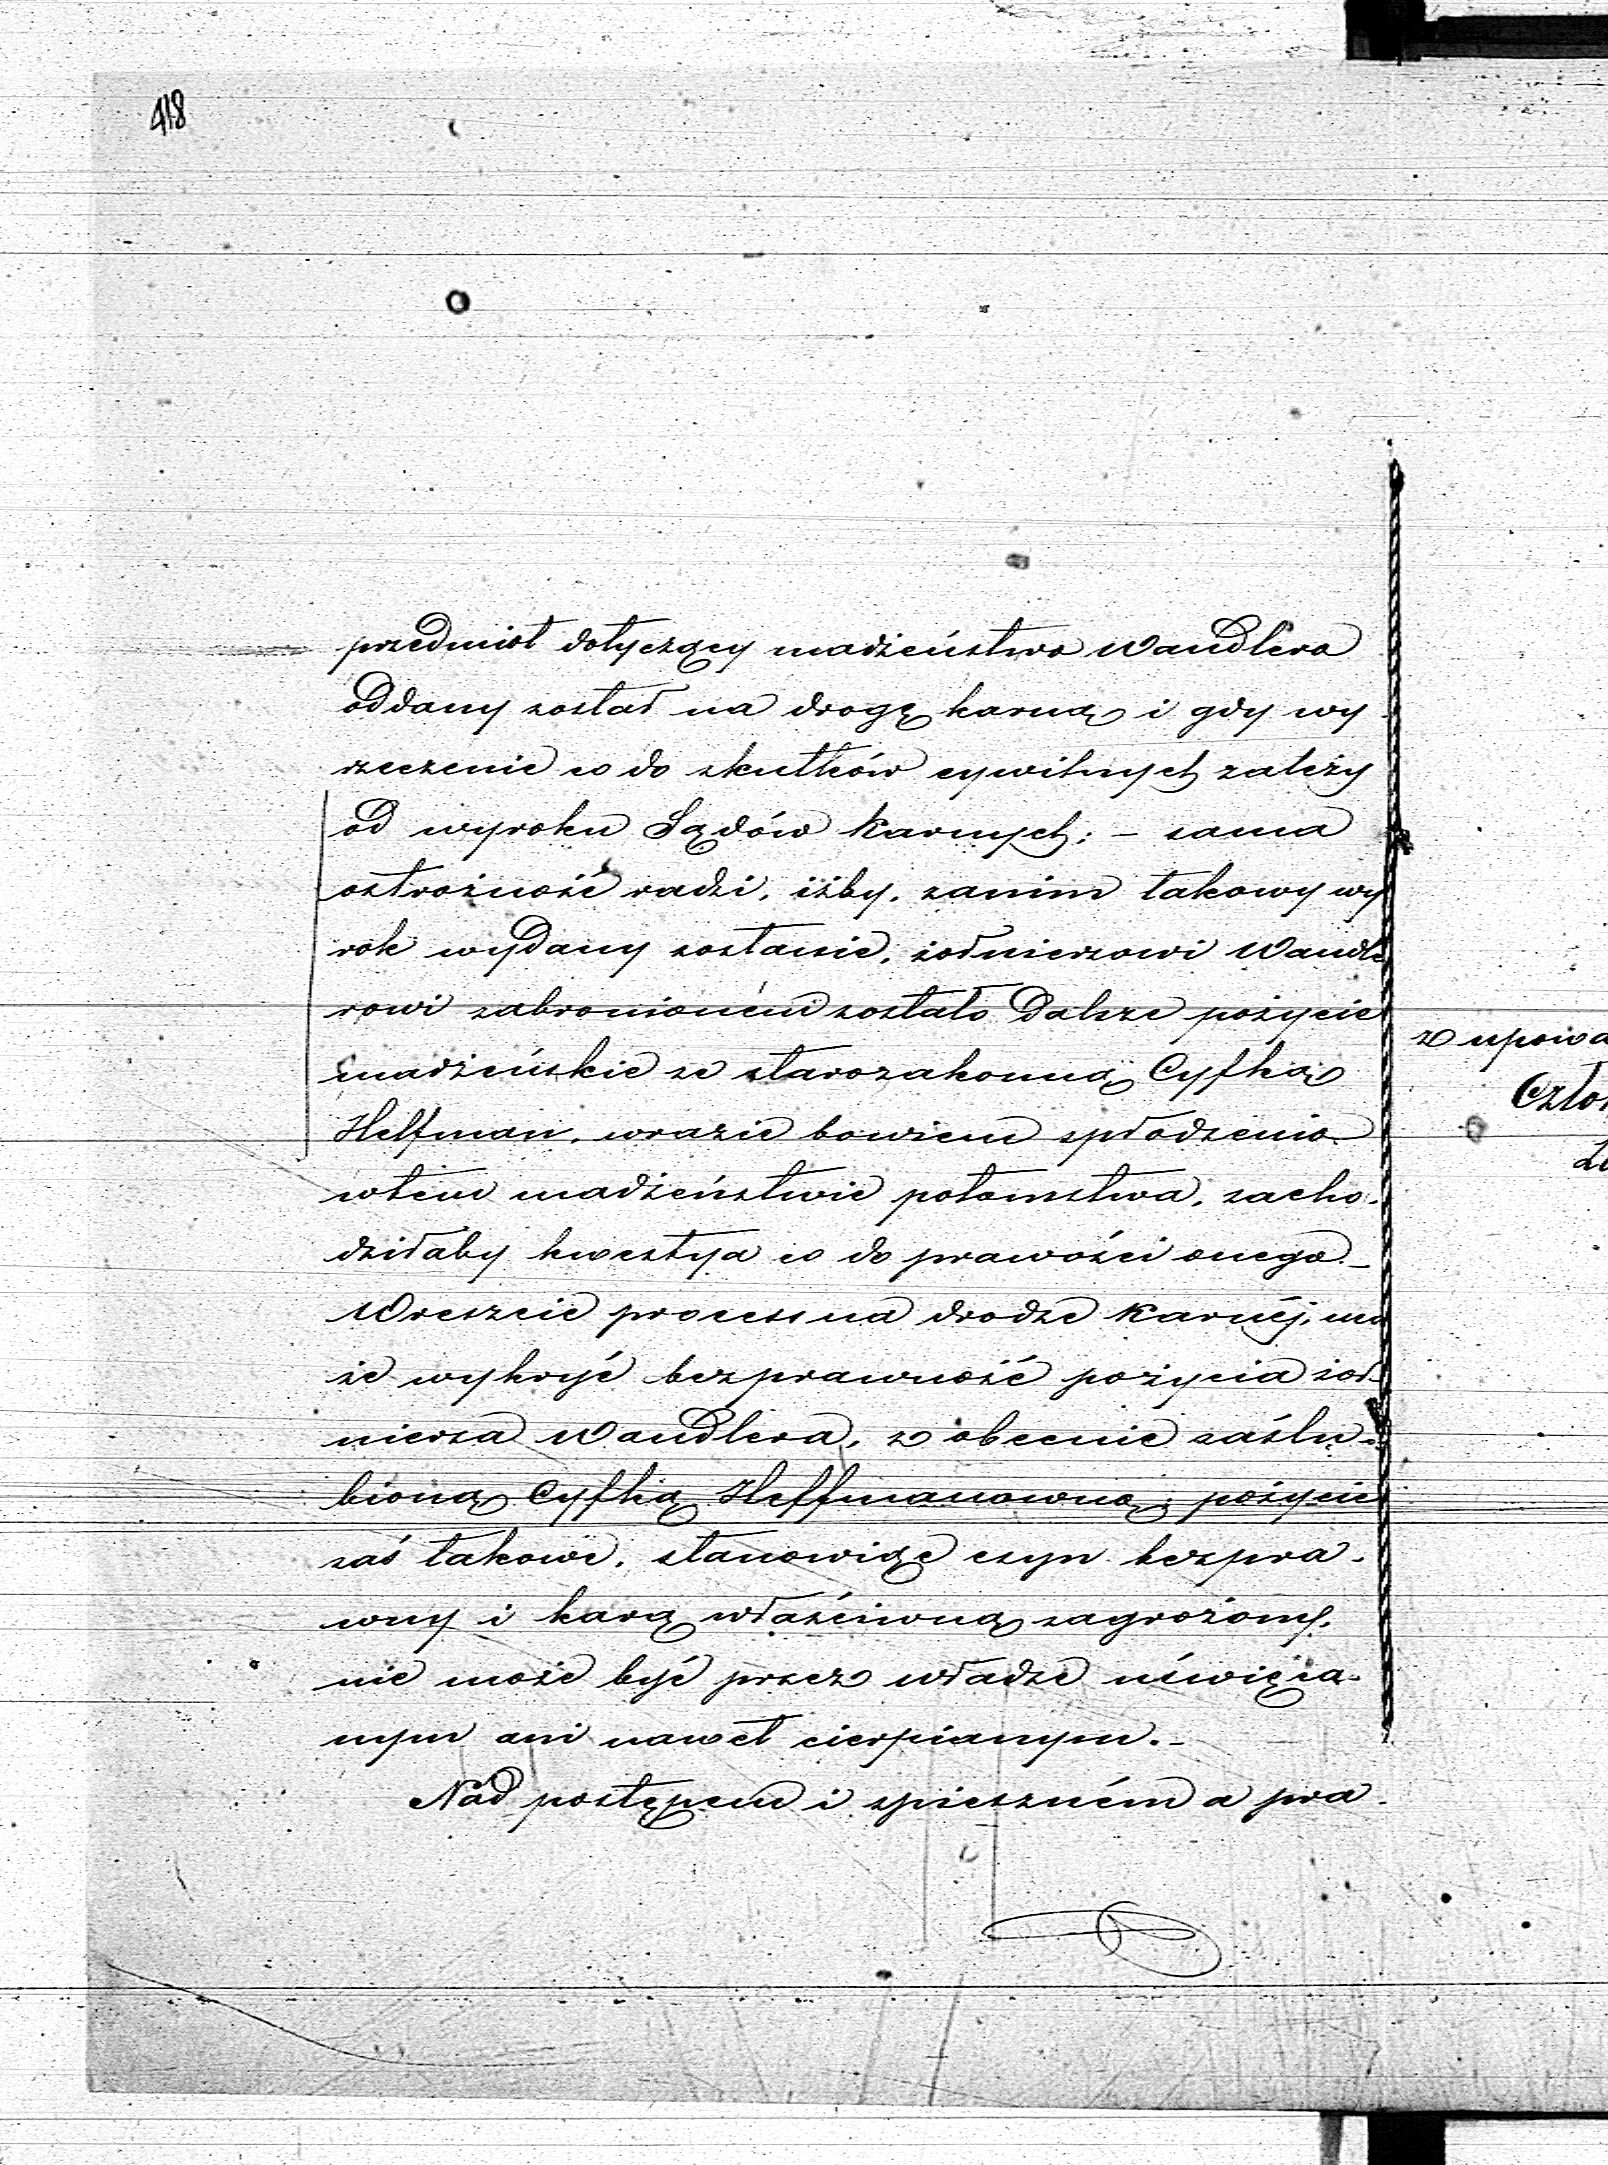 418
przedmiot dotyczący małżeństwa Wandlera
oddany został na drogę karną i gdy wy
rzeczenie co do skutków cywilnych zależy
od wyroku Sądów Karnych; – sama
ostrożność radzi, iżby, zanim takowy wy
rok wydany zostanie, żołnierzowi Wandle
rowi zabronioném zostało dalsze pożycie
małżeńskie ze starozakonną Cyfką
Helfman, wrazie bowiem spłodzenia
wtém małżeństwie potomstwa, zacho-
dziłaby kwestya co do prawości onego.–
Wreszcie process na drodze Karnéj, mo
że wykryć bezprawność pożycia żoł-
nierza Wandlera, z obecnie zaślu-
bioną Cyfką Heffmanowną; pożycie
zaś takowe, stanowiąc czyn bezpra-
wny i karą właściwną zagrożony,
nie może być przez władze uświęca-
nym ani nawet cierpianym.–
Nad postępem i spieszném a pra-
z upowa
Człon